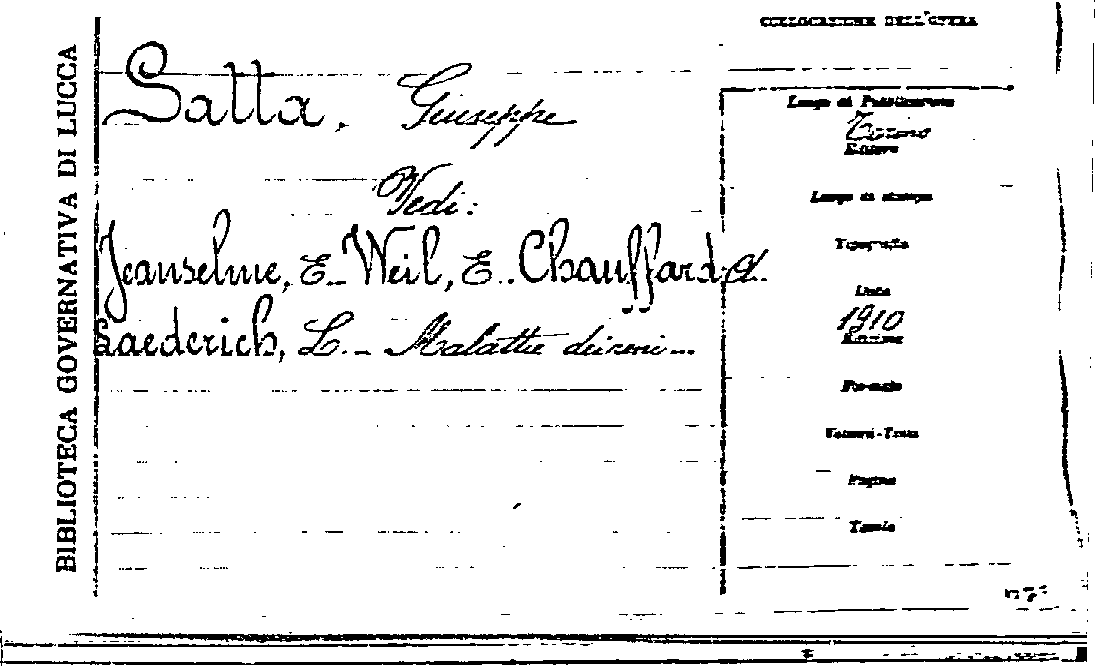 BIBLIOTECA GOVERNATIVA DI LUCCA
COLLOCAZIONE DELL'OPERA
Satta, Giuseppe
Vedi:
Jeanselme, E. - Weil, E. - Chauffard A.
Laederich, L. - Malattie dei reni -
Luogo di Pubblicazione
Torino
Editore
Luogo di stampa
Tipografia
Data
1910
Formato
Volumi - Tomi
Pagine
Tavole